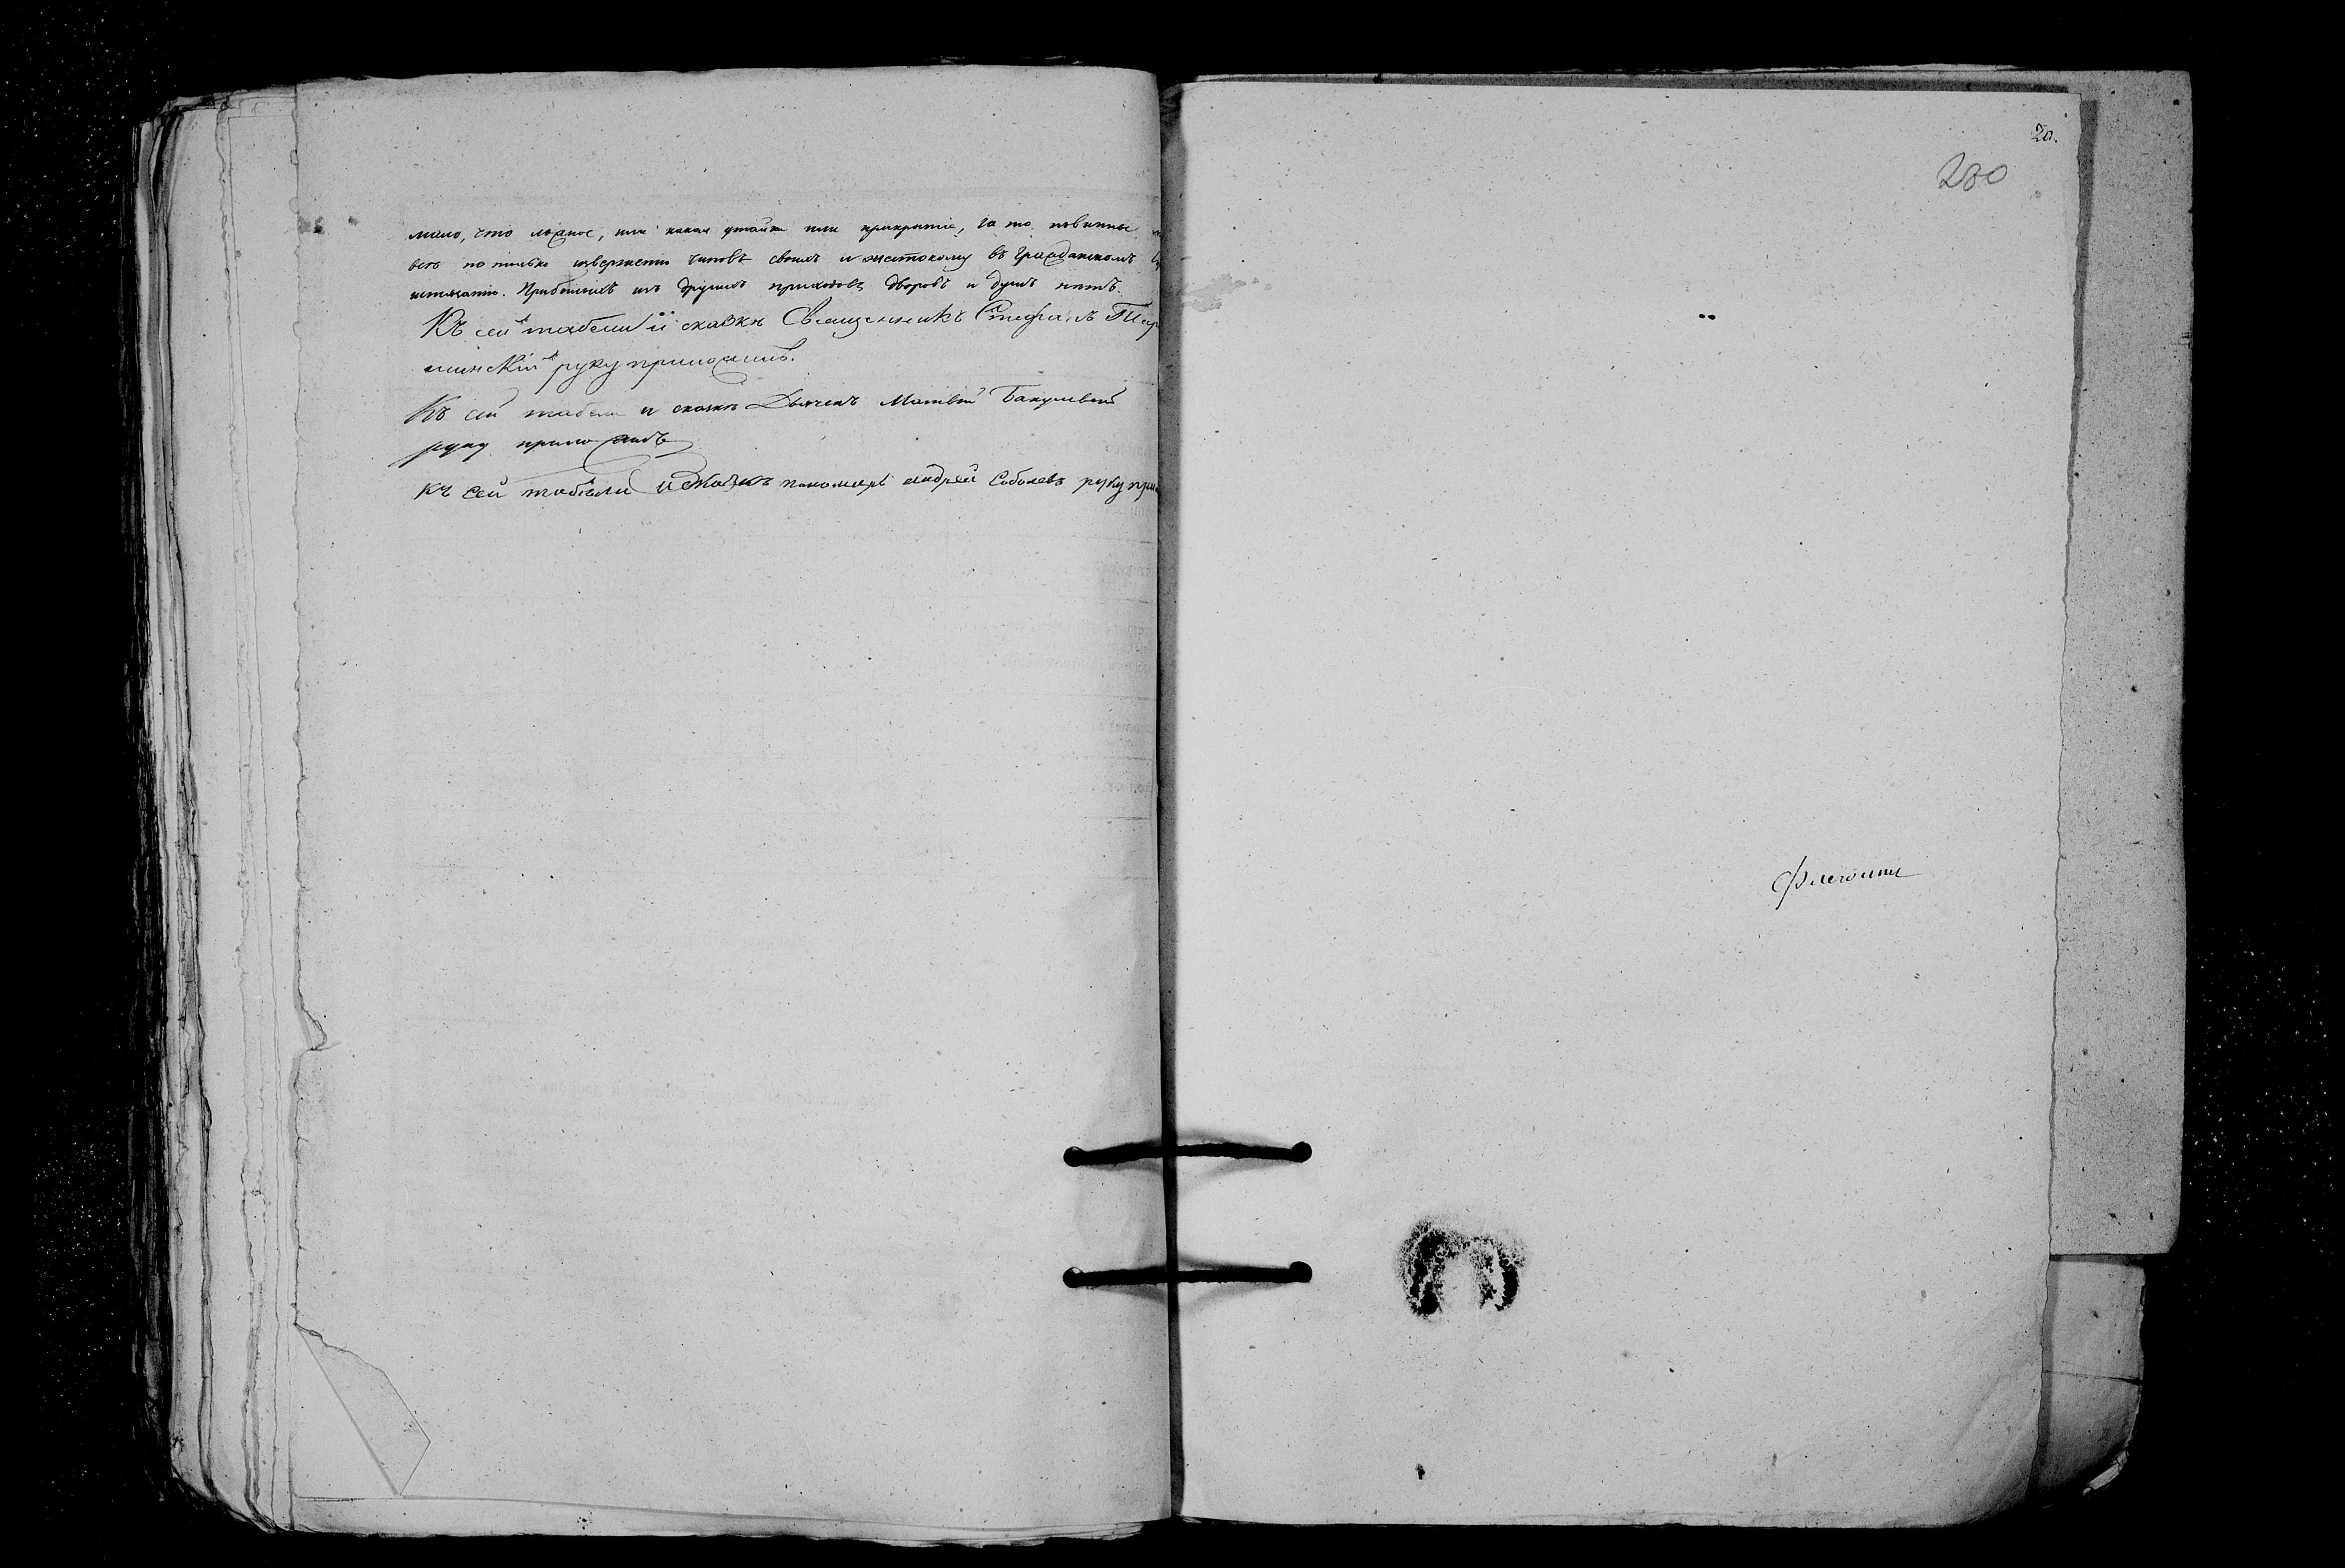 мало, что ложное, или какая утайка или прикрытіе, за то повинны
весь не только изверженію чиновъ своихъ и жестокому въ гражданскомъ
истязанію. Прибылыхъ изъ другихъ приходовъ дворовъ и душъ нетъ.
Къ сей табели и сказкѣ Священникъ Стефанъ
шинскій руку приложилъ.
Къ сей табели и сказкѣ Дьячекъ Матвѣй
руку приложилъ
къ сей табѣли и сказкѣ пономарь андрей Соболевъ руку
20.
200